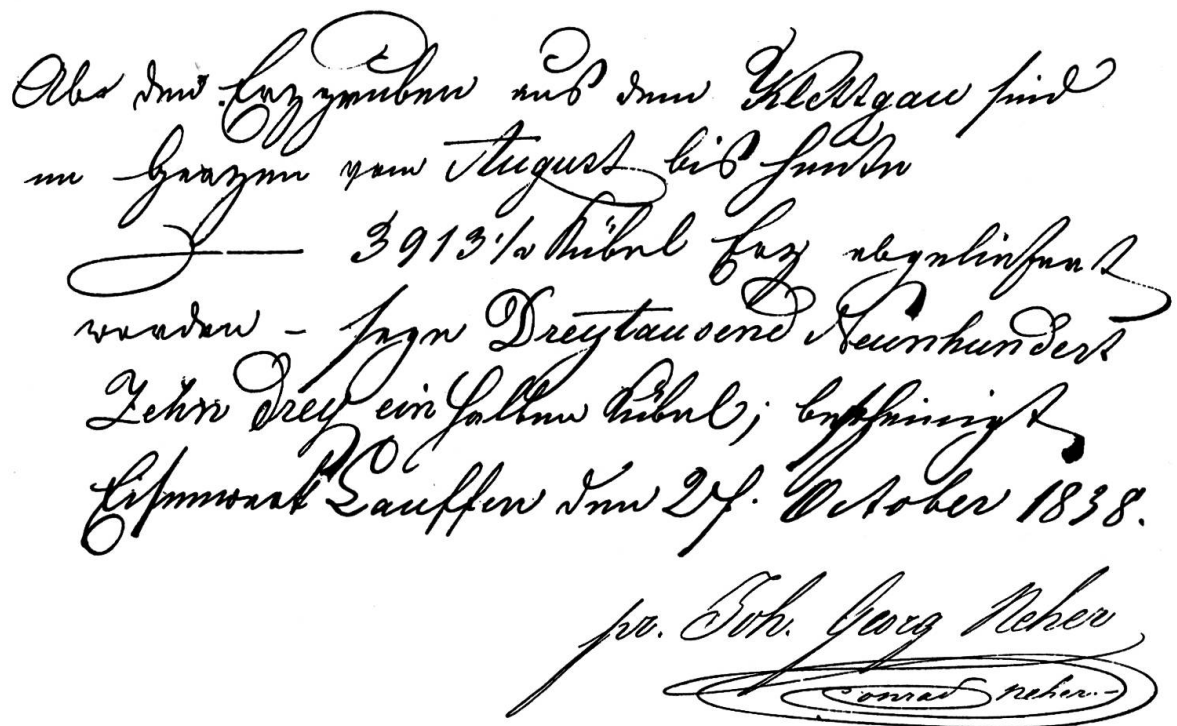 den Erzgruben aus dem Klettgau sind
im Ganzen vom August bis heute
— 3913 1/2 Kübel Erz abgeliefert
worden – sage Dreytausend Neunhundert
Zehn Drey ein halben Kübel; bescheinigt
Eisenwerk Lauffen den 27. October 1838.
pr. Joh. Georg Neher
Conrad Neher.